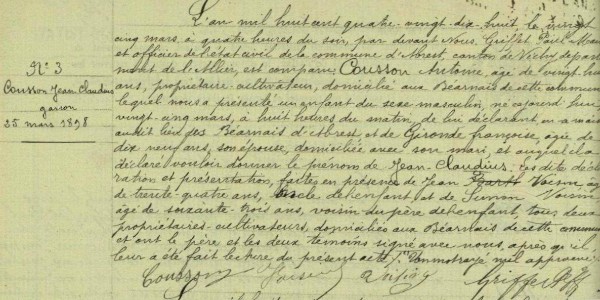 N° 3
Cousson Jean Claudius
garçon
25 mars 1898
L'an mil huit cent quatre-vingt-dix-huit le
cinq mars, à quatre heures du soir, par devant Nous, Griffet Paul, Maire
et officier de l'état civil de la commune d'Abrest, canton de Vichy départe
ment de l'Allier, est comparu Cousson Antoine, âgé de vingt huit
ans, propriétaire-cultivateur, domicilié aux Béarnais de cette commune
lequel nous a présenté un enfant du sexe masculin, né aujourd'hui
vingt-cinq mars, à huit heures du matin, de lui déclarant, en sa maison
audit lieu des Béarnais d'Abrest, et de Gironde françoise, âgée de
dix neuf ans, son épouse, domiciliée avec son mari, et auquel il a
déclaré vouloir donner le prénom de Jean-Claudius. Les dites décla
ration et présentation, faites en présence de Jean Voisin âgé
de trente-quatre ans, oncle de l'enfant et de Voisin
âgé de soixante-trois ans, voisin du père de l'enfant, tous deux
propriétaires-cultivateurs, domiciliés aux Béarnais de cette commune
et ont le père et les deux témoins signé avec nous, après qu'il
leur a été fait lecture du présent acte. Un mot rayé nul approuvé
Cousson Voisin Griffet